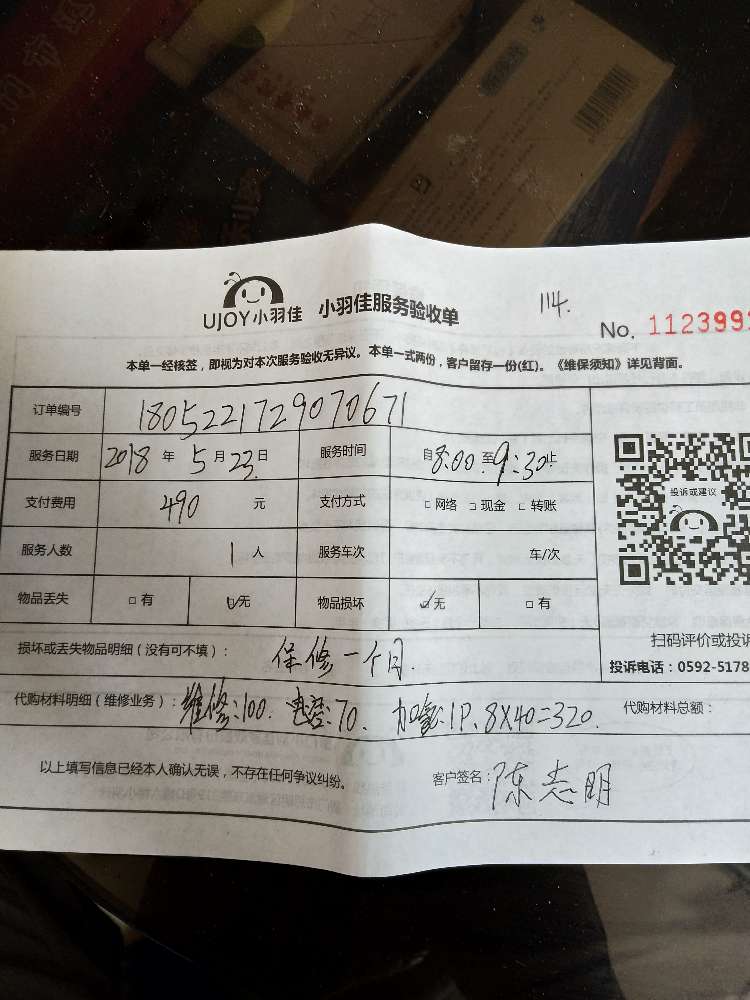 UJOY小羽佳 小羽佳服务验收单 114.
No. 112399
本单一经核签，即视为对本次服务验收无异议。本单一式两份，客户留存一份(红)。《维保须知》详见背面。
订单编号 1805221729070671
服务日期 2018 年 5 月 23 日 服务时间 自8:00 至9:30止
支付费用 490 元 支付方式 □ 网络 □ 现金 □ 转账
投诉或建议
服务人数 1 人 服务车次 车/次
物品丢失 □ 有 ☑无 物品损坏 ☑无 □ 有
扫码评价或投诉
投诉电话：0592-5178
损坏或丢失物品明细（没有可不填）： 保修一个月.
代购材料明细（维修业务）：维修:100. 电容:70. 加氟:1P. 8X40=320. 代购材料总额：
以上填写信息已经本人确认无误，不存在任何争议纠纷。 客户签名：陈志明